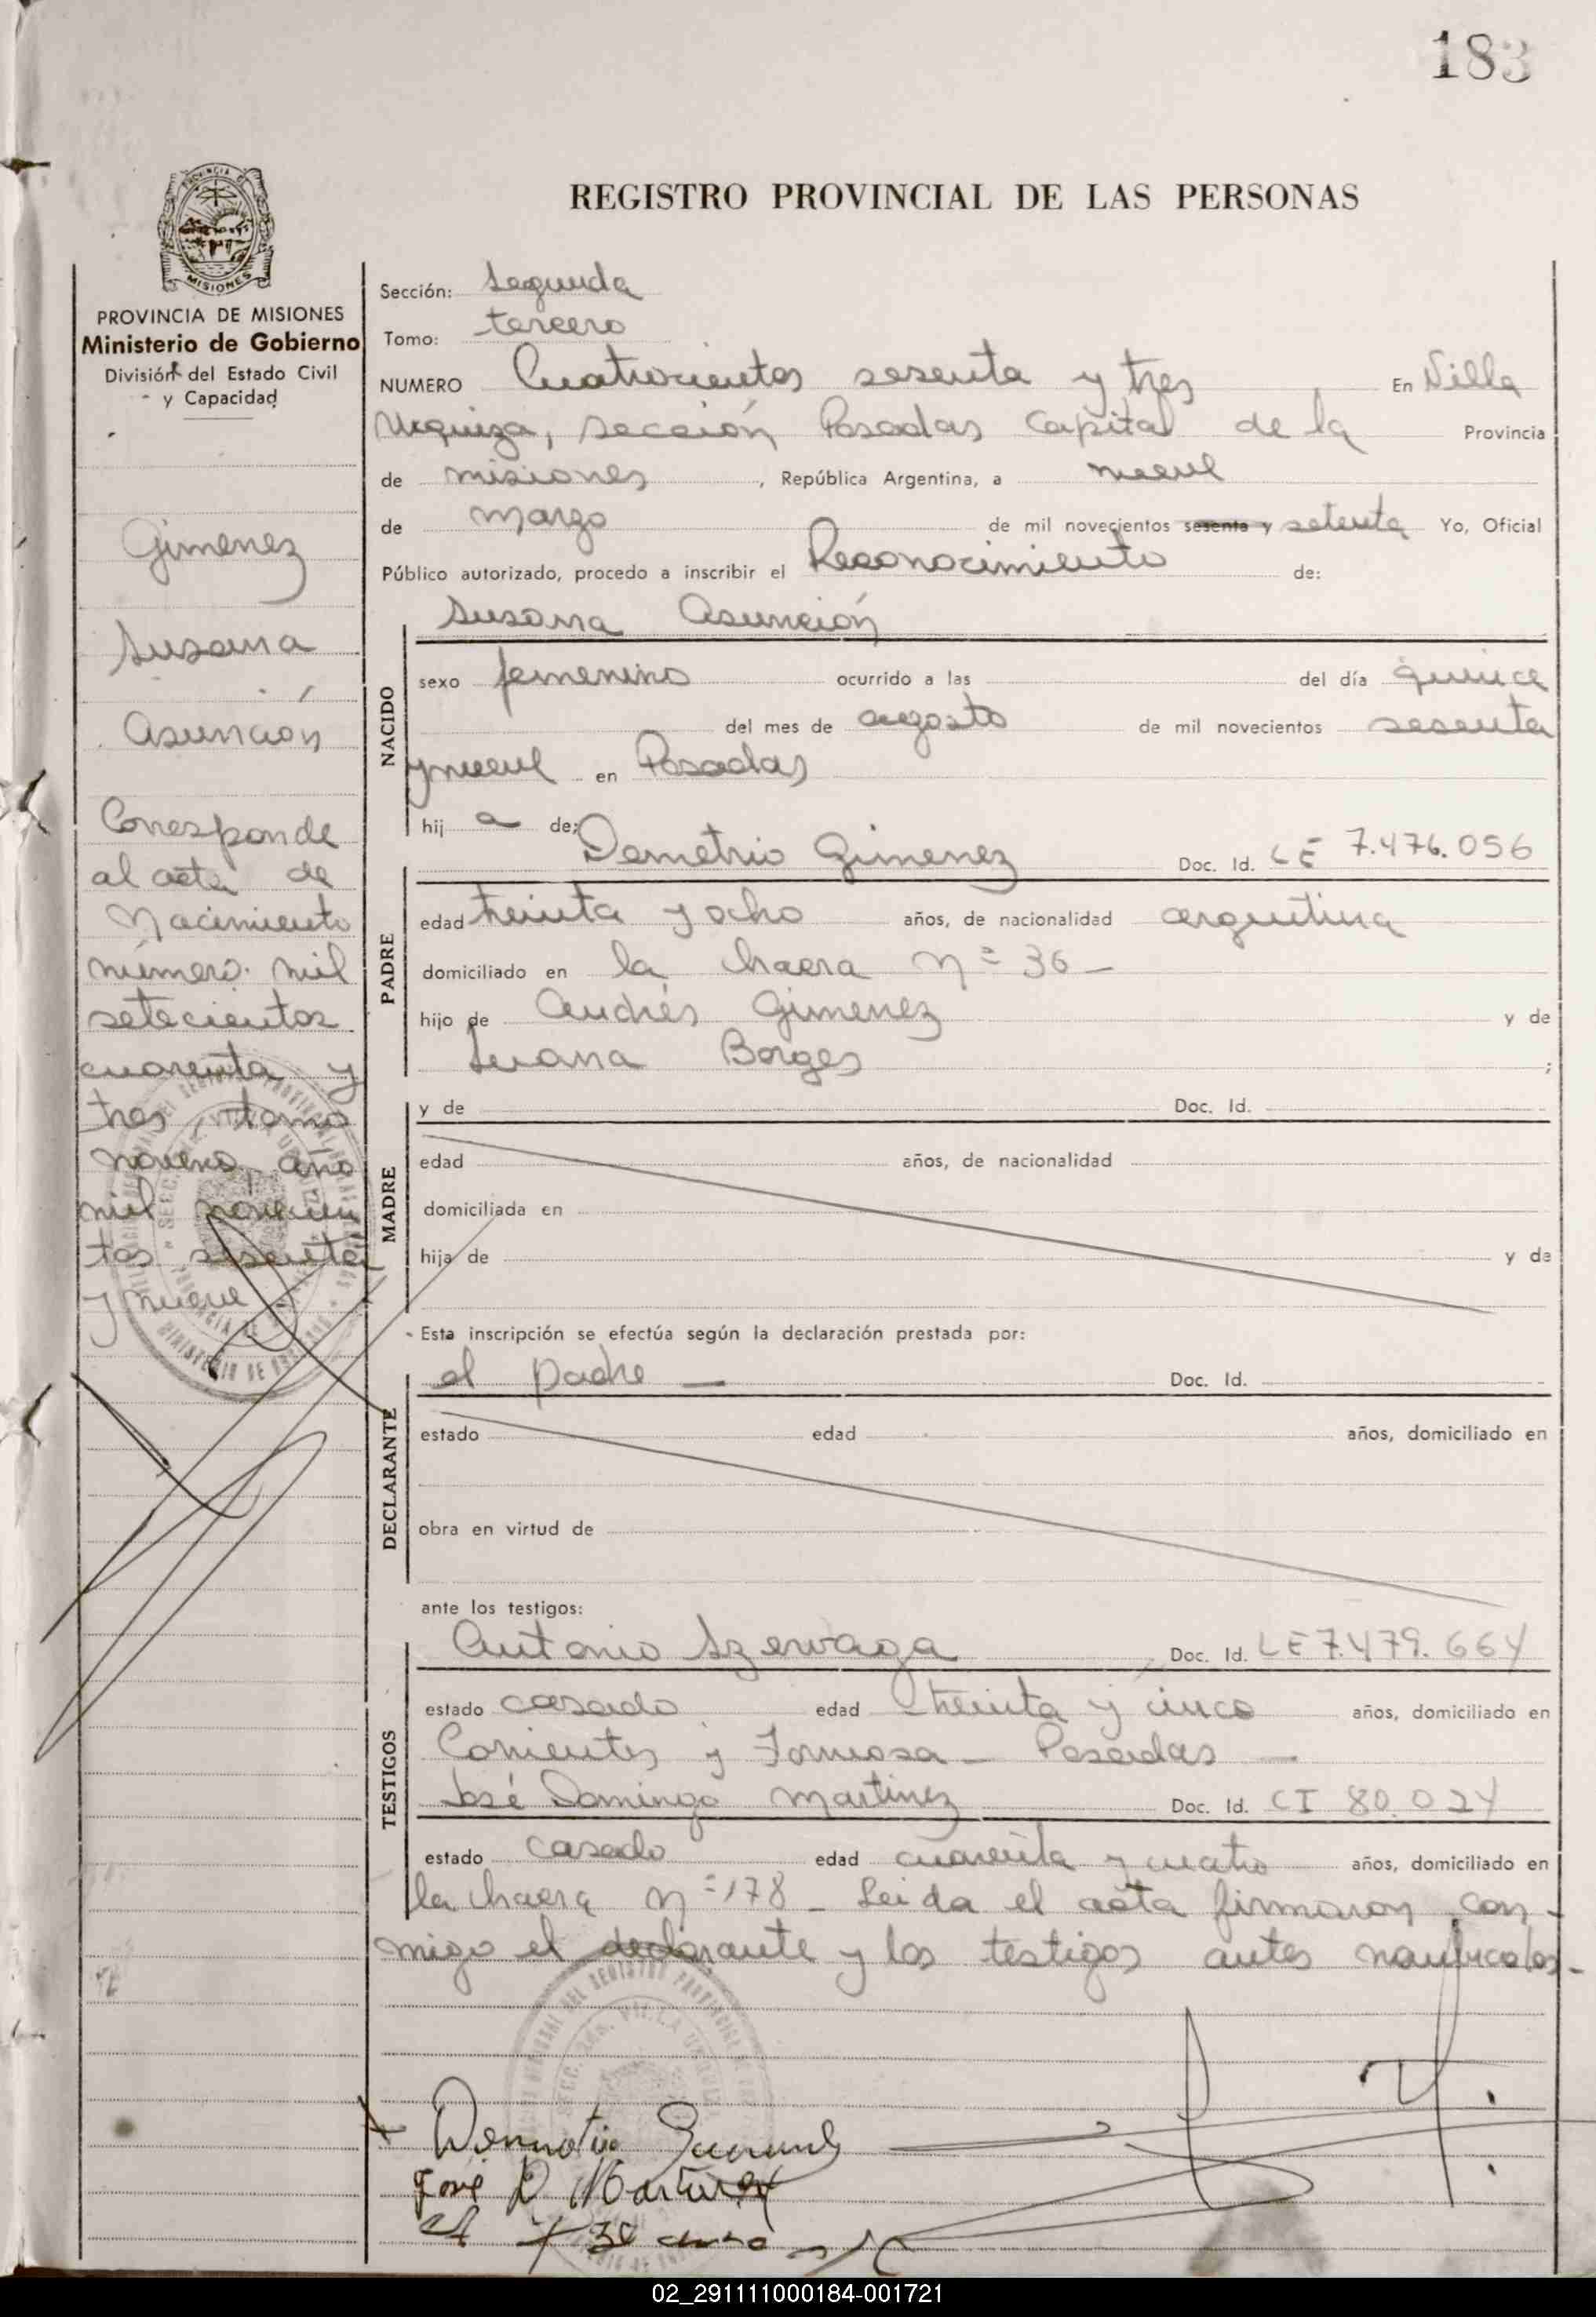 183
REGISTRO PROVINCIAL DE LAS PERSONAS
PROVINCIA DE MISIONES
Ministerio de Gobierno
División del Estado Civil
y Capacidad
Gimenez
Susana
Asunción
Corresponde
al acta de
Nacimiento
número mil
setecientos
cuarenta y
tres, tomo
noveno año
mil novecien
tos sesenta
y nueve
Sección: Segunda
Tomo: tercero
NUMERO Cuatrocientos sesenta y tres En Villa
Urquiza, sección Posadas Capital de la Provincia
de misiones, República Argentina, a nueve
de marzo de mil novecientos sesenta y setenta Yo, Oficial
Público autorizado, procedo a inscribir el Reconocimiento de:
Susana Asunción
NACIDO
sexo femenino ocurrido a las del día quince
del mes de agosto de mil novecientos sesenta
y nueve en Posadas
hij a de:
Demetrio Gimenez Doc. Id. LE 7.476.056
PADRE
edad treinta y ocho años, de nacionalidad argentina
domiciliado en la chacra Nº 36 —
hijo de Andrés Gimenez y de
Juana Borges ;
y de Doc. Id.
MADRE
edad años, de nacionalidad
domiciliada en
hija de y de
Esta inscripción se efectúa según la declaración prestada por:
el padre — Doc. Id.
DECLARANTE
estado edad años, domiciliado en
obra en virtud de
ante los testigos:
Antonio Szewaga Doc. Id. LE 7.479.664
TESTIGOS
estado casado edad treinta y cinco años, domiciliado en
Corrientes y Formosa — Posadas —
José Domingo Martinez Doc. Id. CI 80.024
estado casado edad cuarenta y cuatro años, domiciliado en
la chacra Nº 178 — Leida el acta firmaron con-
migo el declarante y los testigos antes nombrados-
José D Martinez
02_291111000184-001721